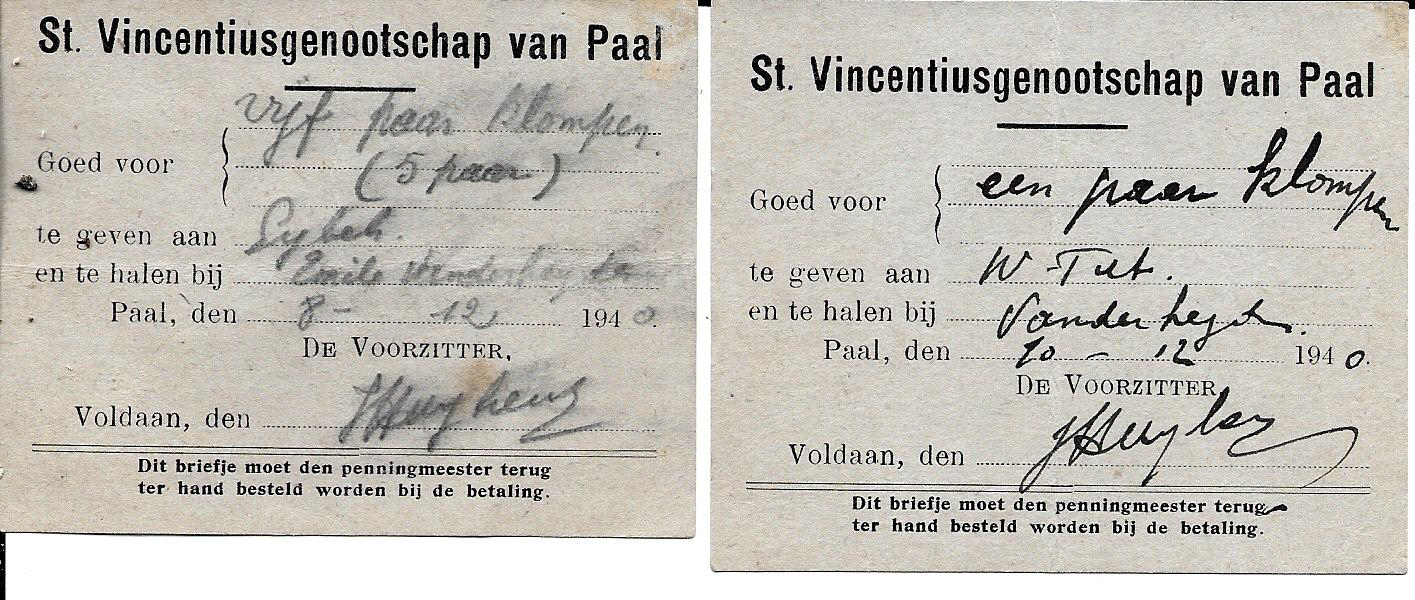 St. Vincentiusgenootschap van Paal
vijf paar klompen.
Goed voor
(5 paar)
te geven aan
en te halen bij Emile
Paal, den 8 - 12 1940.
DE VOORZITTER,
Voldaan, den
Dit briefje moet den penningmeester terug
ter hand besteld worden bij de betaling.
St. Vincentiusgenootschap van Paal
Goed voor een paar klompen
te geven aan W
en te halen bij
Paal, den 10 - 12 1940.
DE VOORZITTER,
Voldaan, den
Dit briefje moet den penningmeester terug
ter hand besteld worden bij de betaling.